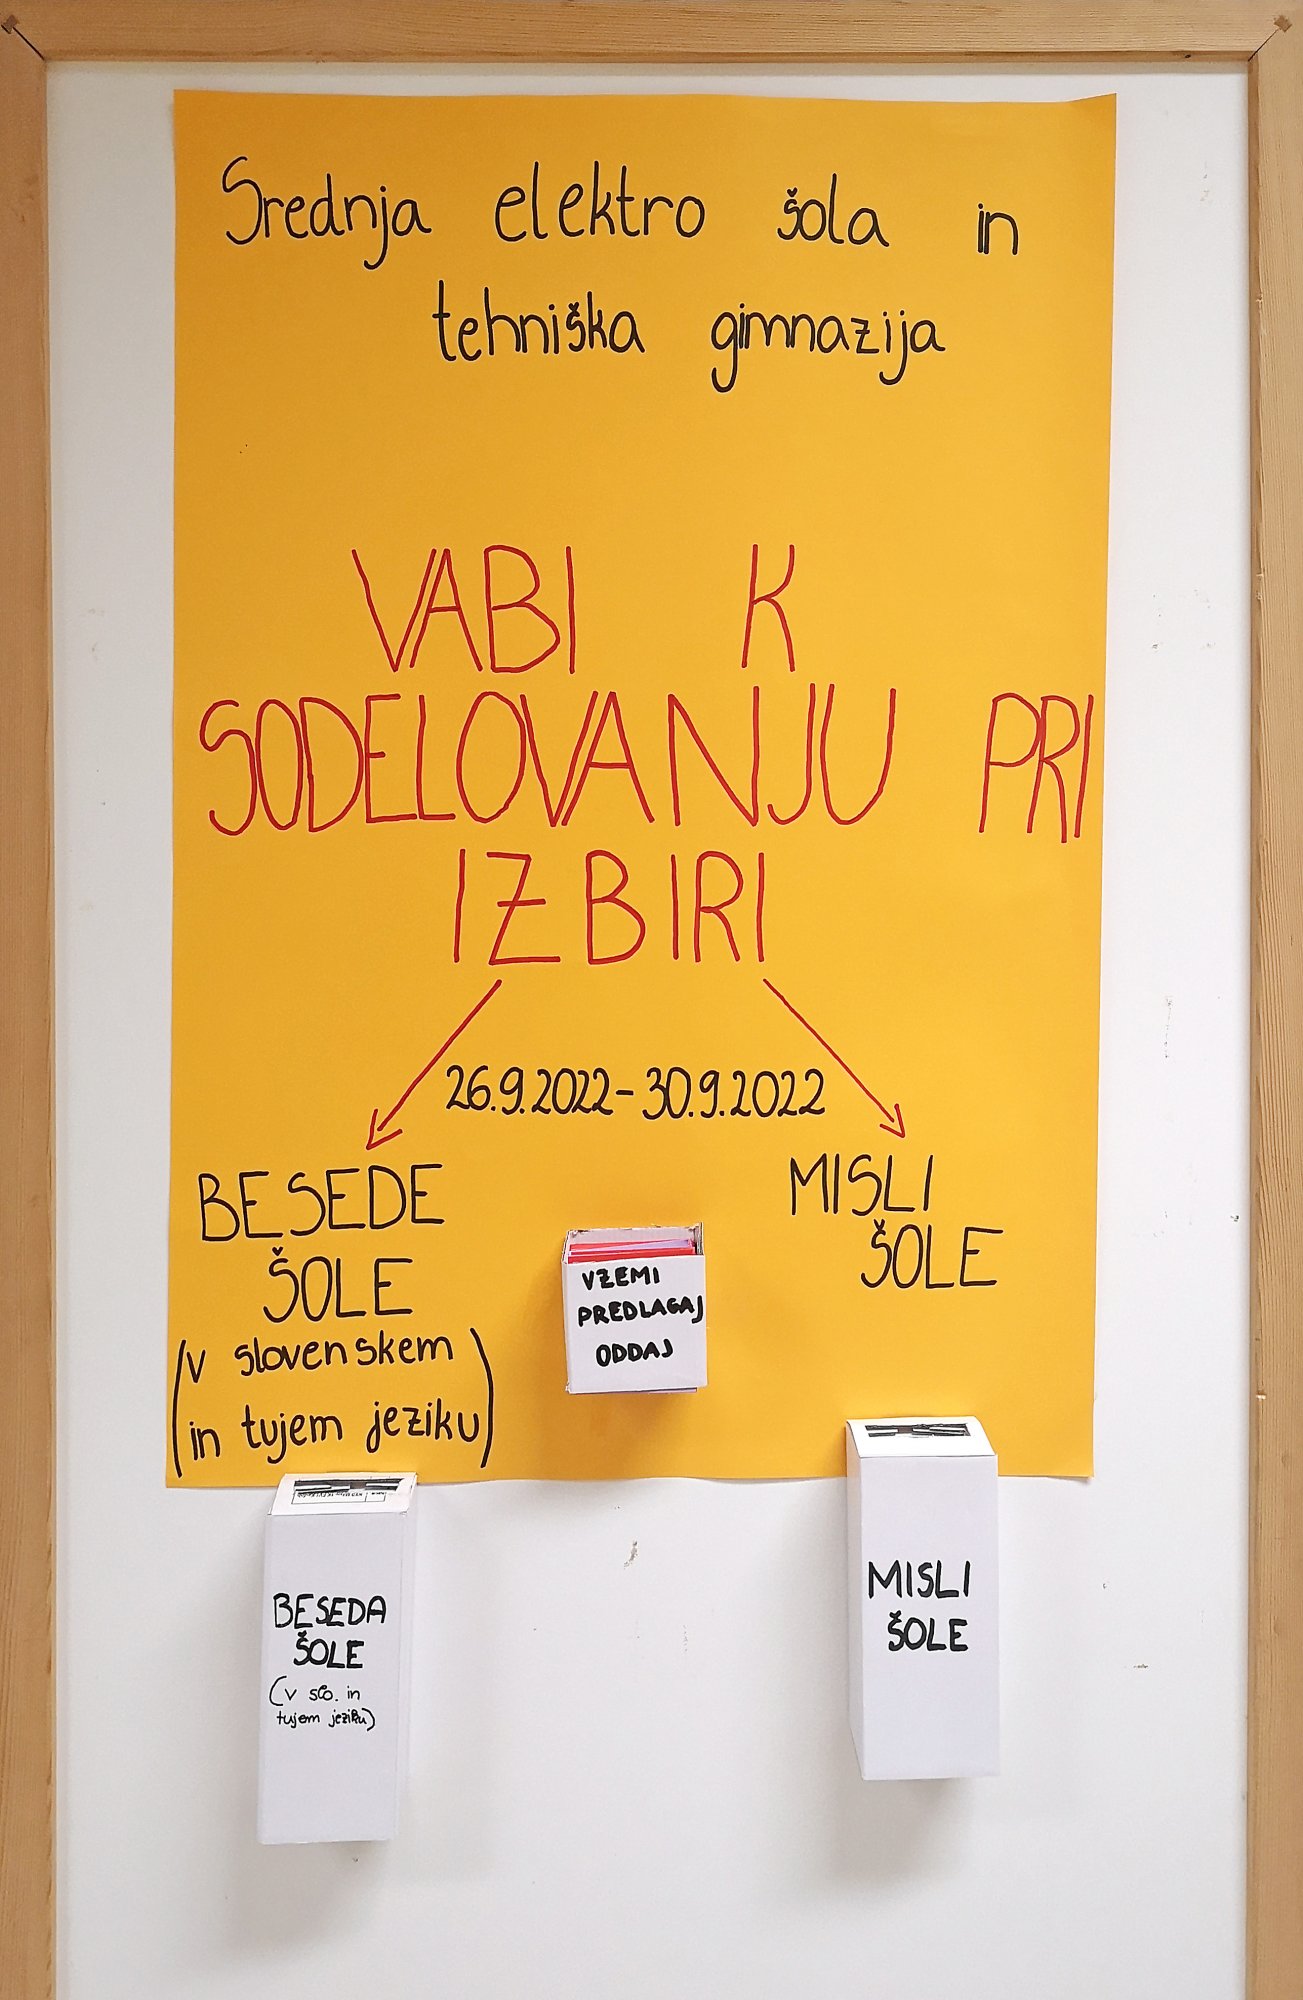 Srednja elektro šola in
tehniška gimnazija
VABI K
SODELOVANJU PRI
IZBIRI
26.9.2022-30.9.2022
BESEDE
ŠOLE
(v slovenskem
in tujem jeziku)
MISLI
ŠOLE
VZEMI
PREDLAGAJ
ODDAJ
BESEDA
ŠOLE
(v slo. in
tujem jeziku)
MISLI
ŠOLE